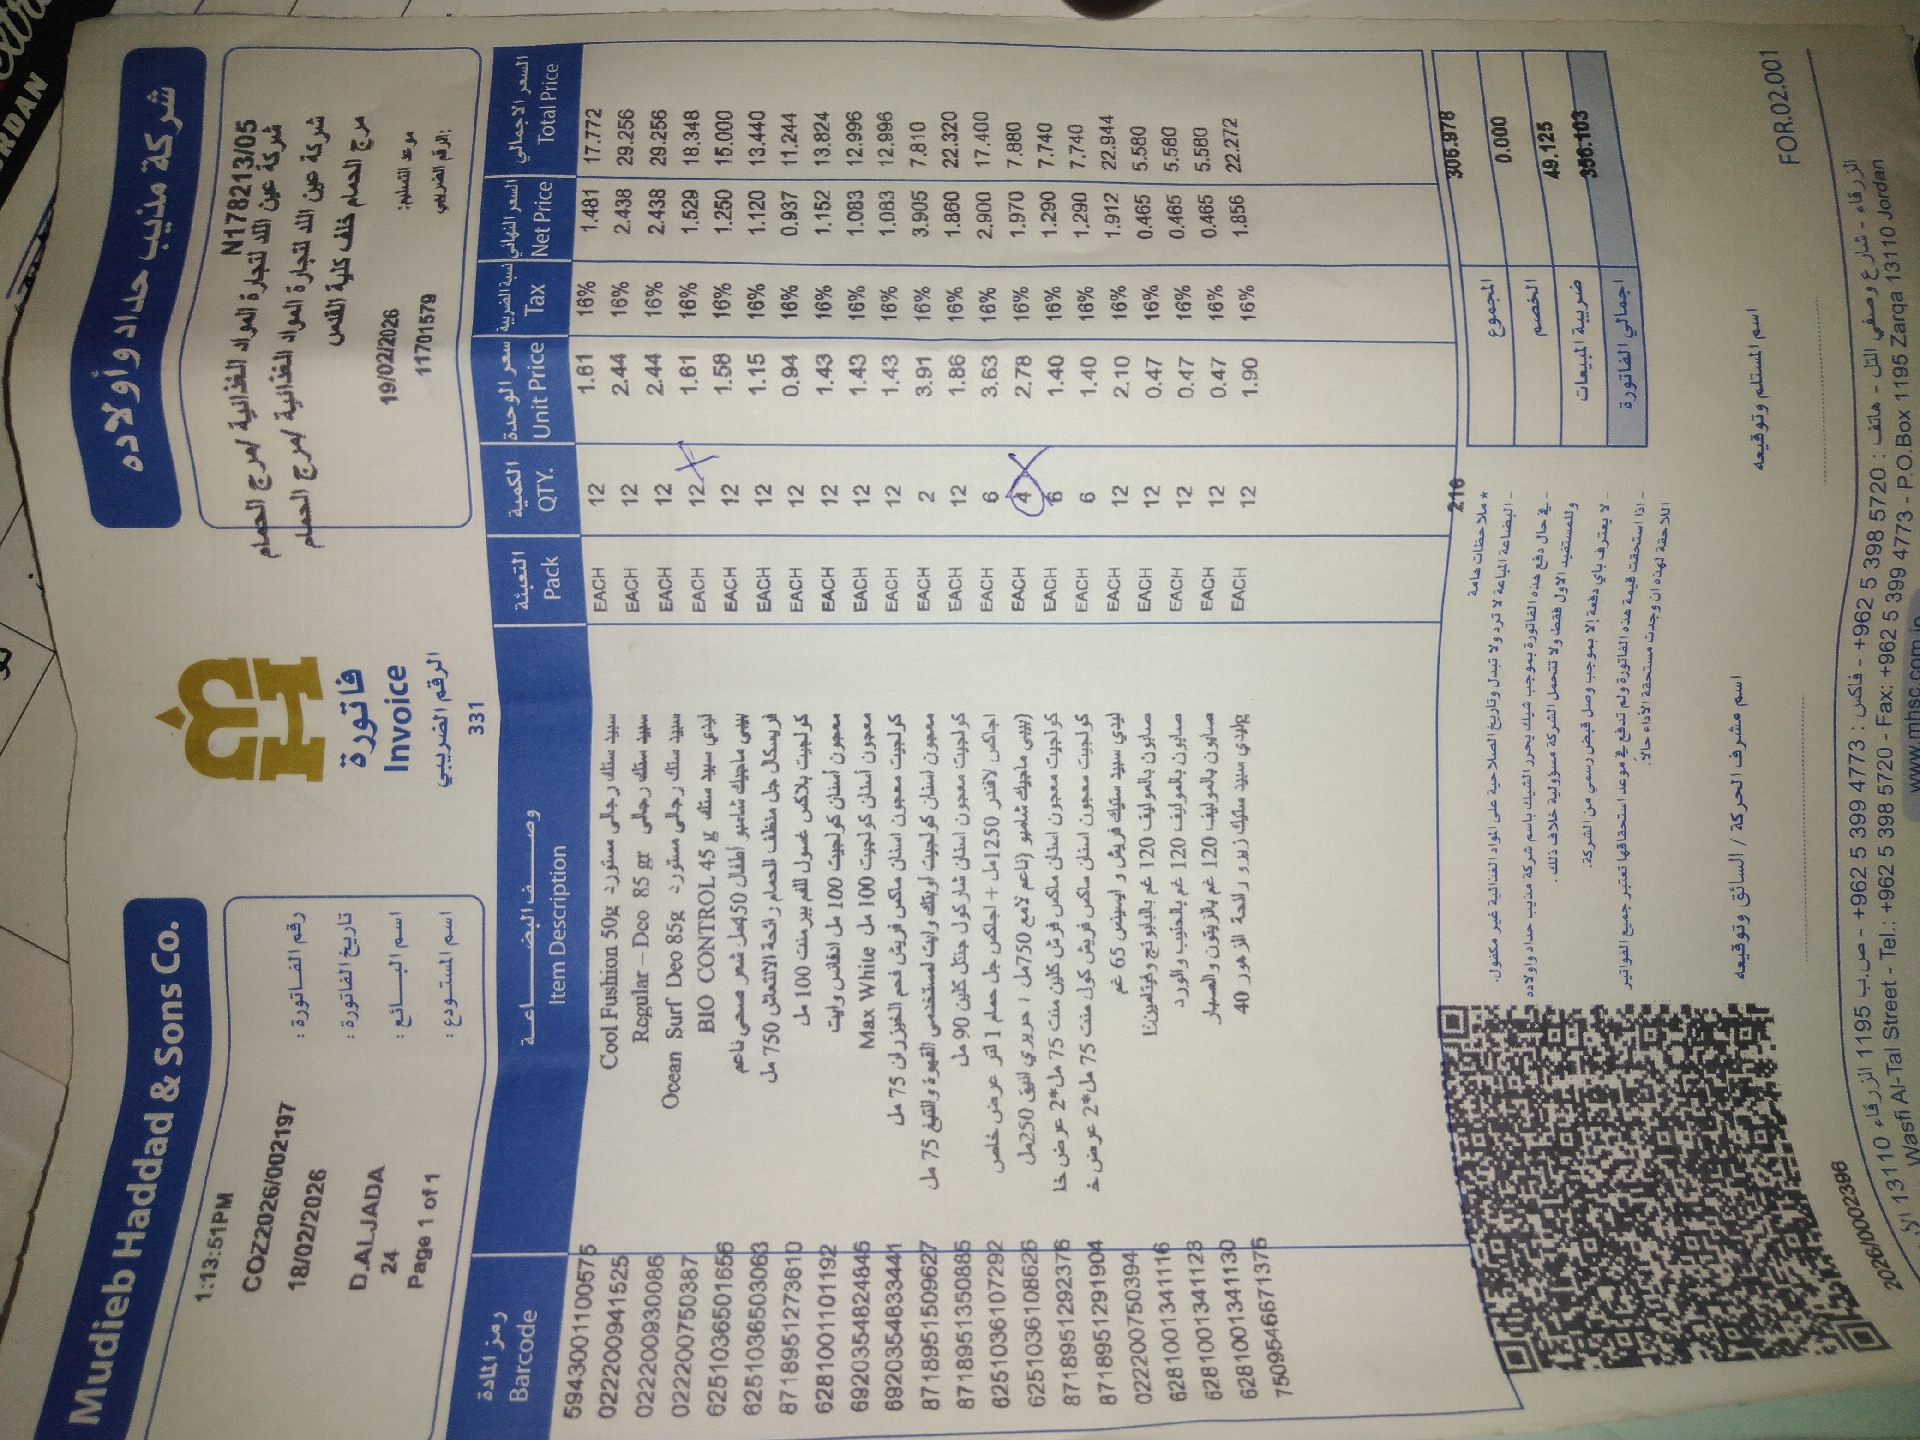 Mudieb Haddad & Sons Co.
شركة منيب حداد وأولاده
فاتورة
Invoice
الرقم الضريبي
331
1:13:51PM
رقم الفاتورة :
COZ2026/002197
تاريخ الفاتورة :
18/02/2026
اسم البائع :
D.ALJADA
اسم المستودع :
24
Page 1 of 1
N178213/05
شركة عين اللد لتجارة المواد الغذائية /مرج الحمام
شركة عين اللد لتجارة المواد الغذائية /مرج الحمام
مرج الحمام خلف كلية القدس
موعد التسليم:
19/02/2026
الرقم الضريبي:
11701579
رمز المادة وصف البضاعة التعبئة الكمية سعر الوحدة نسبة الضريبة السعر النهائي السعر الاجمالي
Barcode Item Description Pack QTY. Unit Price Tax Net Price Total Price
5943001100575 سبيد ستك رجالي مستورد Cool Fushion 50g EACH 12 1.61 16% 1.481 17.772
022200941525 سبيد ستك رجالي Regular – Deo 85 gr EACH 12 2.44 16% 2.438 29.256
022200930086 سبيد ستك رجالي مستورد Ocean Surf Deo 85g EACH 12 2.44 16% 2.438 29.256
022200750387 ليدي سبيد ستك BIO CONTROL 45 g EACH 12 1.61 16% 1.529 18.348
6251036501656 بيبي ماجيك شامبو أطفال 450مل- شعر صحي ناعم EACH 12 1.58 16% 1.250 15.000
6251036503063 فريسكال جل منظف للحمام رائحة الانتعاش 750 مل EACH 12 1.15 16% 1.120 13.440
8718951273610 كولجيت بلاكس غسول للفم بيرمنت 100 مل EACH 12 0.94 16% 0.937 11.244
6281001101192 معجون أسنان كولجيت 100 مل ادفانس وايت EACH 12 1.43 16% 1.152 13.824
6920354824845 معجون أسنان كولجيت 100 مل Max White EACH 12 1.43 16% 1.083 12.996
6920354833441 كولجيت معجون اسنان ماكس فريش فحم الخيزران 75 مل EACH 12 1.43 16% 1.083 12.996
8718951509627 معجون اسنان كولجيت اوبتك وايت لمستخدمي القهوة والتبغ 75 مل EACH 2 3.91 16% 3.905 7.810
8718951350885 كولجيت معجون اسنان شاركول جنتل كلين 90 مل EACH 12 1.86 16% 1.860 22.320
6251036107292 اجاكس لافندر 1250مل + اجاكس جل حمام 1 لتر عرض خاص EACH 6 3.63 16% 2.900 17.400
6251036108626 بيبي ماجيك شامبو (ناعم لامع 750مل / حريري انيق 250مل EACH 4 2.78 16% 1.970 7.880
8718951292376 كولجيت معجون اسنان ماكس فرش كلين منت 75 مل*2 عرض خا EACH 6 1.40 16% 1.290 7.740
8718951291904 كولجيت معجون اسنان ماكس فريش كول منت 75 مل*2 عرض خ EACH 6 1.40 16% 1.290 7.740
022200750394 ليدي سبيد ستيك فريش و ايسينس 65 غم EACH 12 2.10 16% 1.912 22.944
6281001341116 صابون بالموليف 120 غم بالبابونج وفيتامين EACH 12 0.47 16% 0.465 5.580
6281001341123 صابون بالموليف 120 غم بالحليب والورد EACH 12 0.47 16% 0.465 5.580
6281001341130 صابون بالموليف 120 غم بالزيتون والصبار EACH 12 0.47 16% 0.465 5.580
7509546671376 ليدي سبيد ستيك زيرو رائحة الزهور 40g EACH 12 1.90 16% 1.856 22.272
216
المجموع 306.978
الخصم 0.000
ضريبة المبيعات 49.125
اجمالي الفاتورة 356.103
*ملاحظات هامة
- البضاعة المباعة لا ترد ولا تبدل وتاريخ الصلاحية على المواد الغذائية غير مكفول.
- في حال دفع هذه الفاتورة بموجب شيك يحرر الشيك باسم شركة منيب حداد واولاده
وللمستفيد الاول فقط ولا تتحمل الشركة مسؤولية خلاف ذلك .
- لا يعترف باي دفعة إلا بموجب وصل قبض رسمي من الشركة.
- اذا استحقت قيمة هذه الفاتورة ولم تدفع في موعد استحقاقها تعتبر جميع الفواتير
اللاحقة لهذه ان وجدت مستحقة الأداء حالاً.
اسم مشرف الحركة / السائق وتوقيعه
اسم المستلم وتوقيعه
FOR.02.001
2026/0002398
الزرقاء - شارع وصفي التل - هاتف : 5720 398 5 962+ - فاكس : 4773 399 5 962+ - ص.ب 1195 الزرقاء 13110
Wasfi Al-Tal Street - Tel.: +962 5 398 5720 - Fax: +962 5 399 4773 - P.O.Box 1195 Zarqa 13110 Jordan
www.mhsc.com.jo